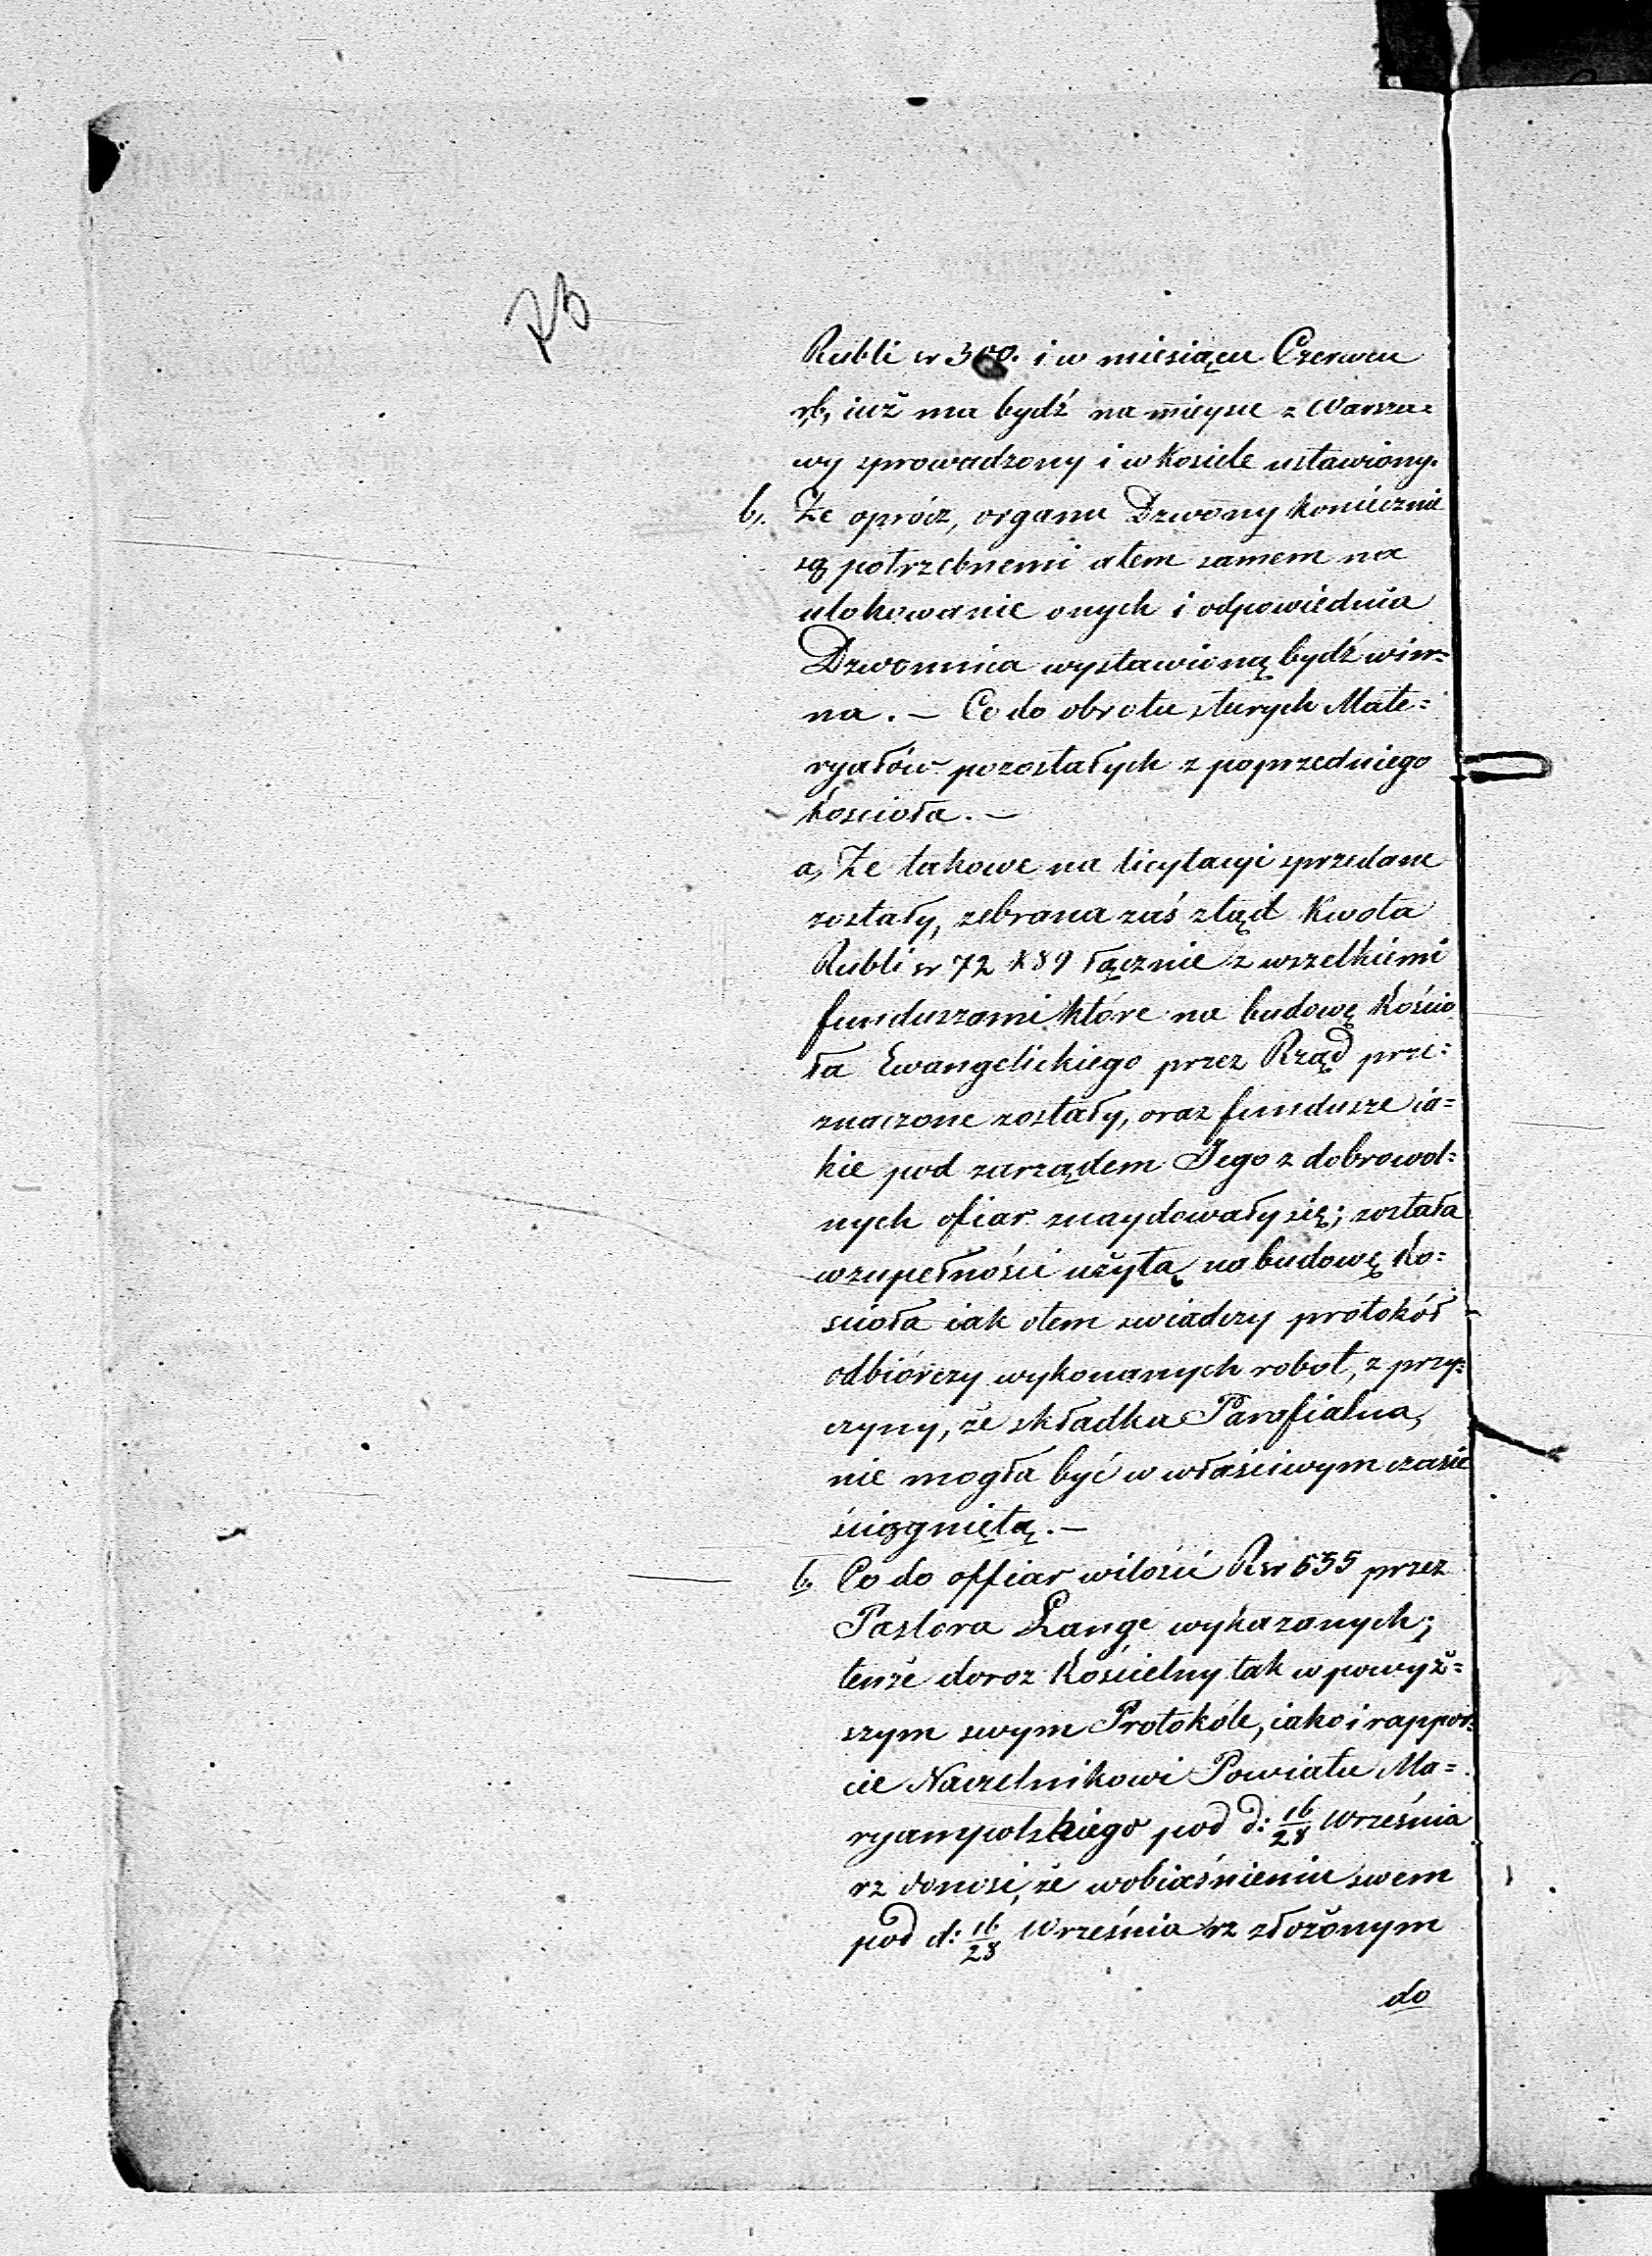 Rubli sr 300. i w miesiącu Czerwcu
rb, iuż ma bydź na mieysce z Warsza=
wy sprowadzony i w kosciele ustawiony.
b). Że oprócz, organu Dzwony koniecznie
są potrzebnemi atem samem na
ulokowanie onych i odpowiednia
Dzwonnica wystawioną bydź win=
na. — Co do obrotu starych Mate=
ryałów pozostałych z poprzedniego
Kościoła. —
a, Że takowe na licytacyi sprzedane
zostały, zebrana zaś ztąd Kwota
Rubli sr 72 k 89 łącznie z wszelkiemi
funduszami które na budowę Kościo
ła Ewangelickiego przez Rząd prze=
znaczone zostały, oraz fundusze ia=
kie pod zarządem Jego z dobrowol=
nych ofiar znaydowały się; została
wzupełności użytą na budowę Ko=
scioła iak otem swiadczy protokół
odbiórczy wykonanych robot, z przy=
czyny, że składka Parafialna,
nie mogła być w właściwym czasie
ściągniętą. —
b. Co do offiar wilości Rsr 535 przez
Pastora Lange wykazanych;
tenże doroz Kościelny tak w powyż=
szym swym Protokóle, iako i rappor=
cie Naczelnikowi Powiatu Ma=
ryampolskiego pod d: 16/28 Września
rz donosi, że wobiaśnieniu swem
pod d: 16/28 Września rz złożonym
do